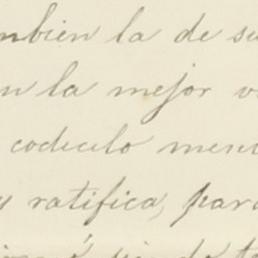 mbien la de su
n la mejor v
codicilo menc
y ratifica, para
ó si de t